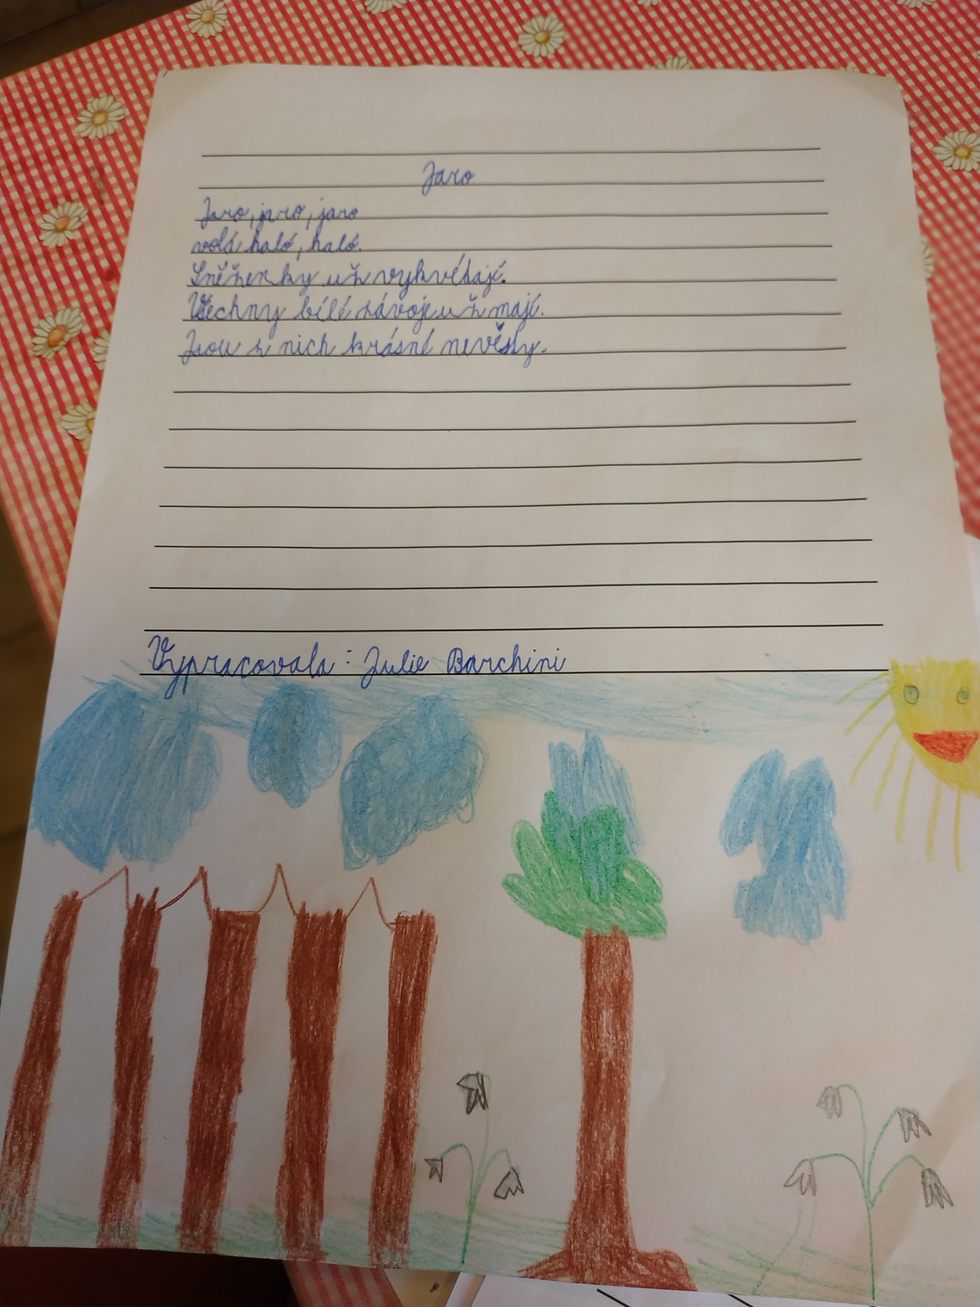 Jaro
Jaro, jaro, jaro
volá haló, haló.
Sněženky už vykvétají.
Všechny bílé závoje už mají.
Jsou z nich krásné nevěsty.
Vypracovala: Julie Barchini